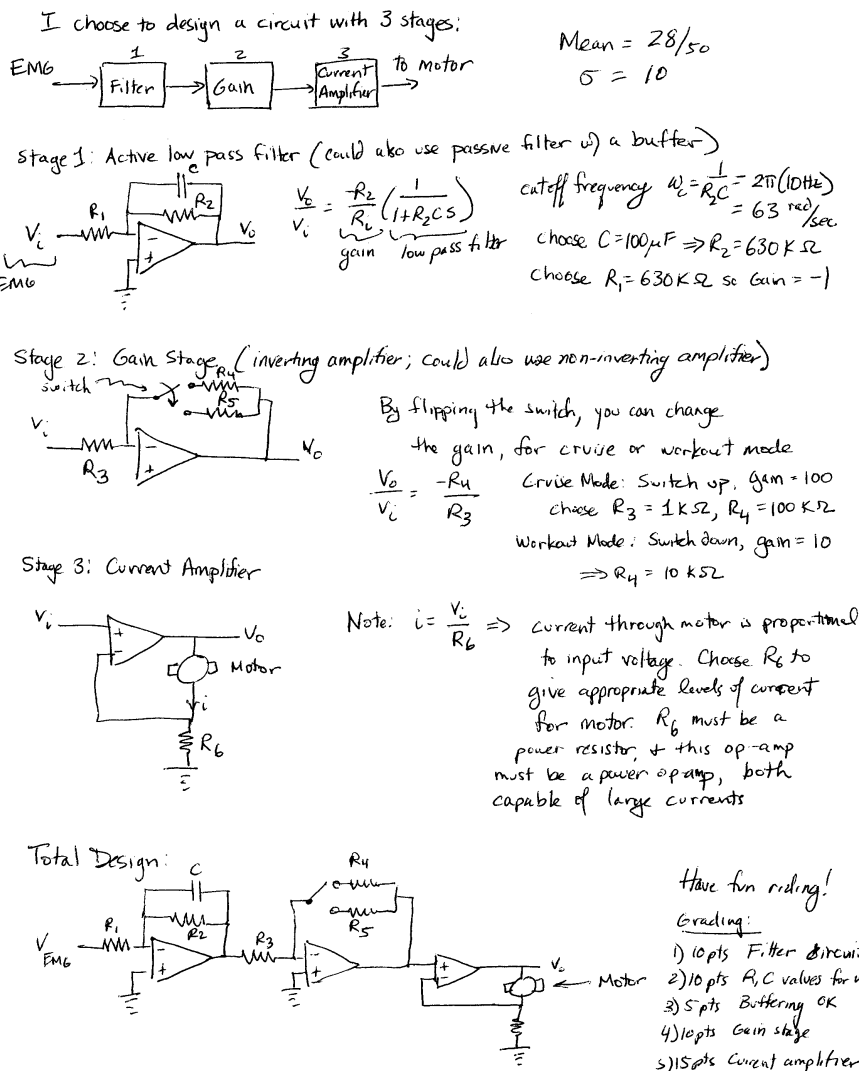 I choose to design a circuit with 3 stages:
Mean = 28/50
σ = 10
1 2 3
EMG Filter Gain Current Amplifier to motor
Stage 1: Active low pass filter (could also use passive filter w/ a buffer)
C
R2
R1
Vi
Vo
EMG
Vo/Vi = -R2/R1 (1/(1+R2CS))
gain low pass filter
cutoff frequency ωc = 1/R2C = 2π(10Hz)
= 63 rad/sec.
choose C=100μF ⇒ R2=630KΩ
choose R1=630KΩ so Gain = -1
Stage 2: Gain Stage (inverting amplifier; could also use non-inverting amplifier)
switch
R4
R5
Vi
R3
Vo
By flipping the switch, you can change
the gain, for cruise or workout mode
Vo/Vi = -R4/R3
Cruise Mode: Switch up, gain = 100
choose R3 = 1KΩ, R4 = 100KΩ
Workout Mode: Switch down, gain = 10
⇒ R4 = 10KΩ
Stage 3: Current Amplifier
Vi
Vo
Motor
i
R6
Note: i = Vi/R6 ⇒ current through motor is proportional
to input voltage. Choose R6 to
give appropriate levels of current
for motor. R6 must be a
power resistor, + this op-amp
must be a power op-amp, both
capable of large currents
Total Design:
C
R4
R1
R2
R3
R5
VEMG
Vo
Motor
Have fun riding!
Grading:
1) 10pts Filter circui
2) 10pts R,C values for
3) 5pts Buffering OK
4) 10pts Gain stage
5) 15pts Current amplifier